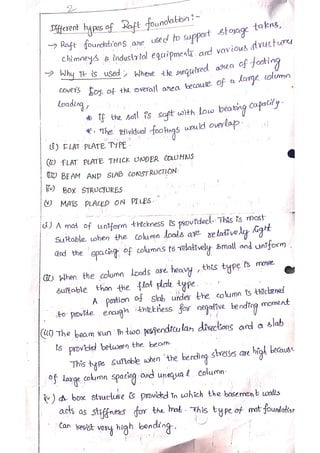 2
Different types of Raft foundation:-
→ Raft foundations are used to support storage takns,
chimneys & industrial equipments and various structures
→ Why it is used, where the required area of footing
covers 50% of the overall area because of a large column
loading,
* If the soil is soft with low bearing capacity.
* The individual footings would overlap.
(i) FLAT PLATE TYPE
(ii) FLAT PLATE THICK UNDER COLUMNS
(iii) BEAM AND SLAB CONSTRUCTION
(iv) BOX STRUCTURES
(v) MATS PLACED ON PILES.
(i) A mat of uniform thickness is provided. This is most
suitable when the column loads are relatively light
and the spacing of columns is relatively small and uniform.
(ii) When the column loads are heavy, this type is more
suitable than the flat plate type.
A portion of slab under the column is thickened
to provide enough thickness for negative bending moment
(iii) The beam run in two perpendicular directions and a slab
is provided between the beam.
This type suitable when the bending stresses are high because
of large column spacing and unequal column.
(iv) A box structure is provided in which the basement walls
acts as stiffness for the mat. This type of mat foundation
can resist very high bending.